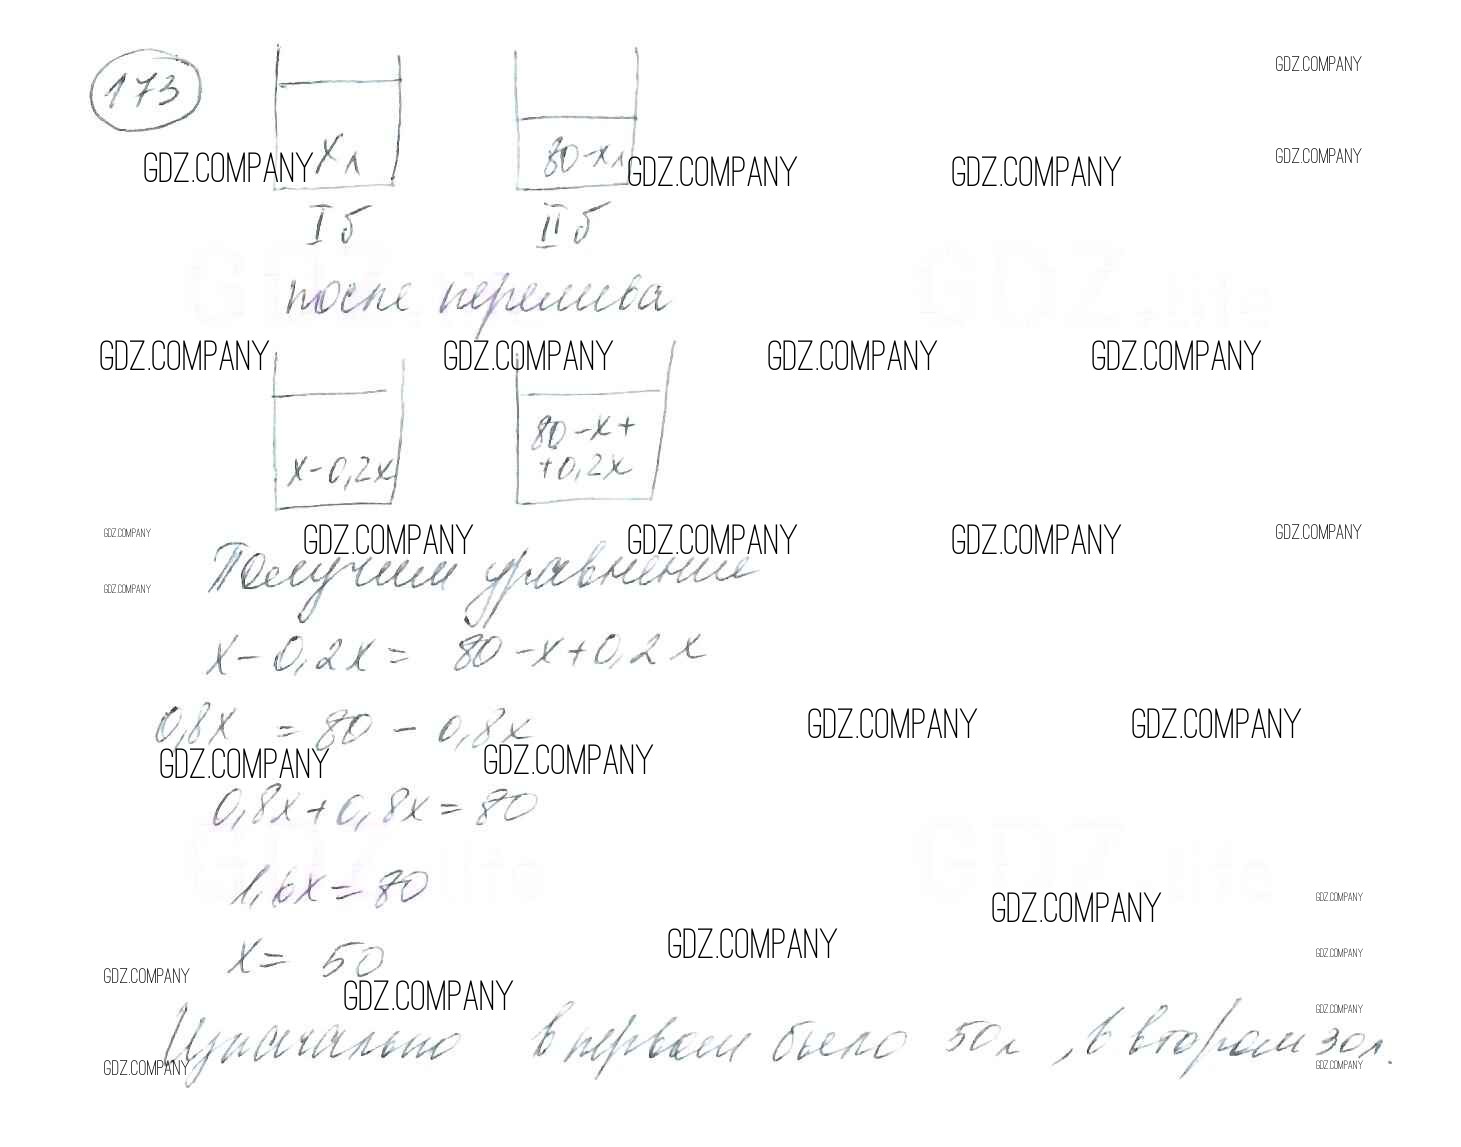 173
GDZ.COMPANY
GDZ.COMPANY
x л
80-x л
GDZ.COMPANY GDZ.COMPANY GDZ.COMPANY
I б
II б
GDZ.life GDZ.life
после перелива
GDZ.COMPANY GDZ.COMPANY GDZ.COMPANY GDZ.COMPANY
x-0,2x
80-x+
+0,2x
GDZ.COMPANY GDZ.COMPANY GDZ.COMPANY GDZ.COMPANY GDZ.COMPANY
Получим уравнение
GDZ.COMPANY
x-0,2x= 80-x+0,2x
0,8x = 80 - 0,8x
GDZ.COMPANY GDZ.COMPANY
GDZ.COMPANY GDZ.COMPANY
0,8x+0,8x=80
GDZ.life GDZ.life
1,6x=80
GDZ.COMPANY GDZ.COMPANY
GDZ.COMPANY GDZ.COMPANY
x= 50
GDZ.COMPANY GDZ.COMPANY
GDZ.COMPANY
Изначально в первом было 50л, в втором 30л.
GDZ.COMPANY GDZ.COMPANY